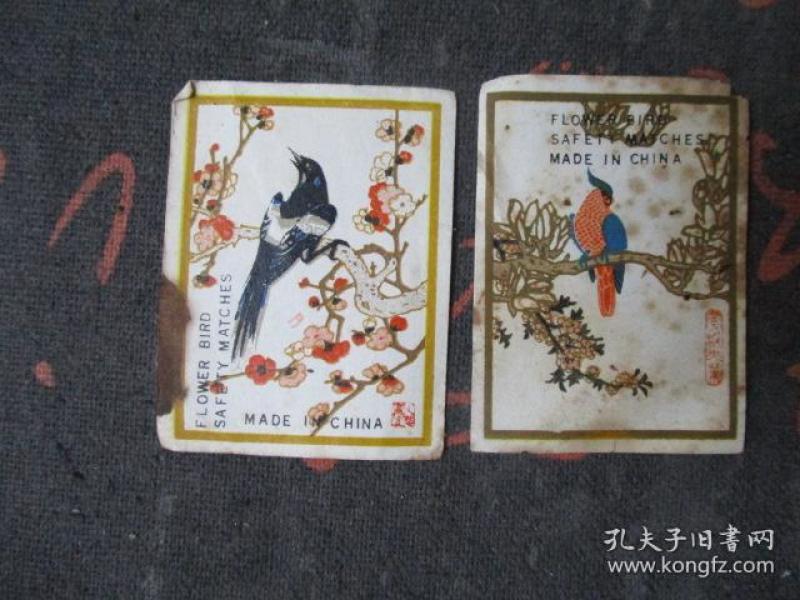 FLOWER BIRD
SAFETY MATCHES
MADE IN CHINA
FLOWER BIRD
SAFETY MATCHES
MADE IN CHINA
孔夫子旧书网
www.kongfz.com